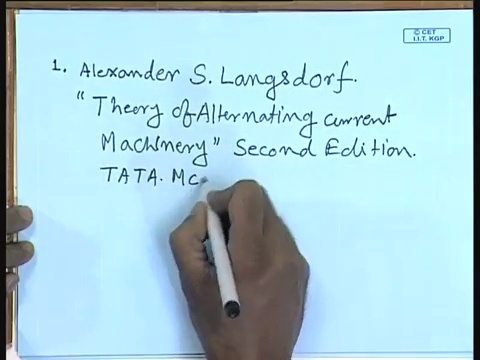 © CET
I.I.T. KGP
1. Alexander S. Langsdorf.
"Theory of Alternating current
Machinery" Second Edition.
TATA. Mc